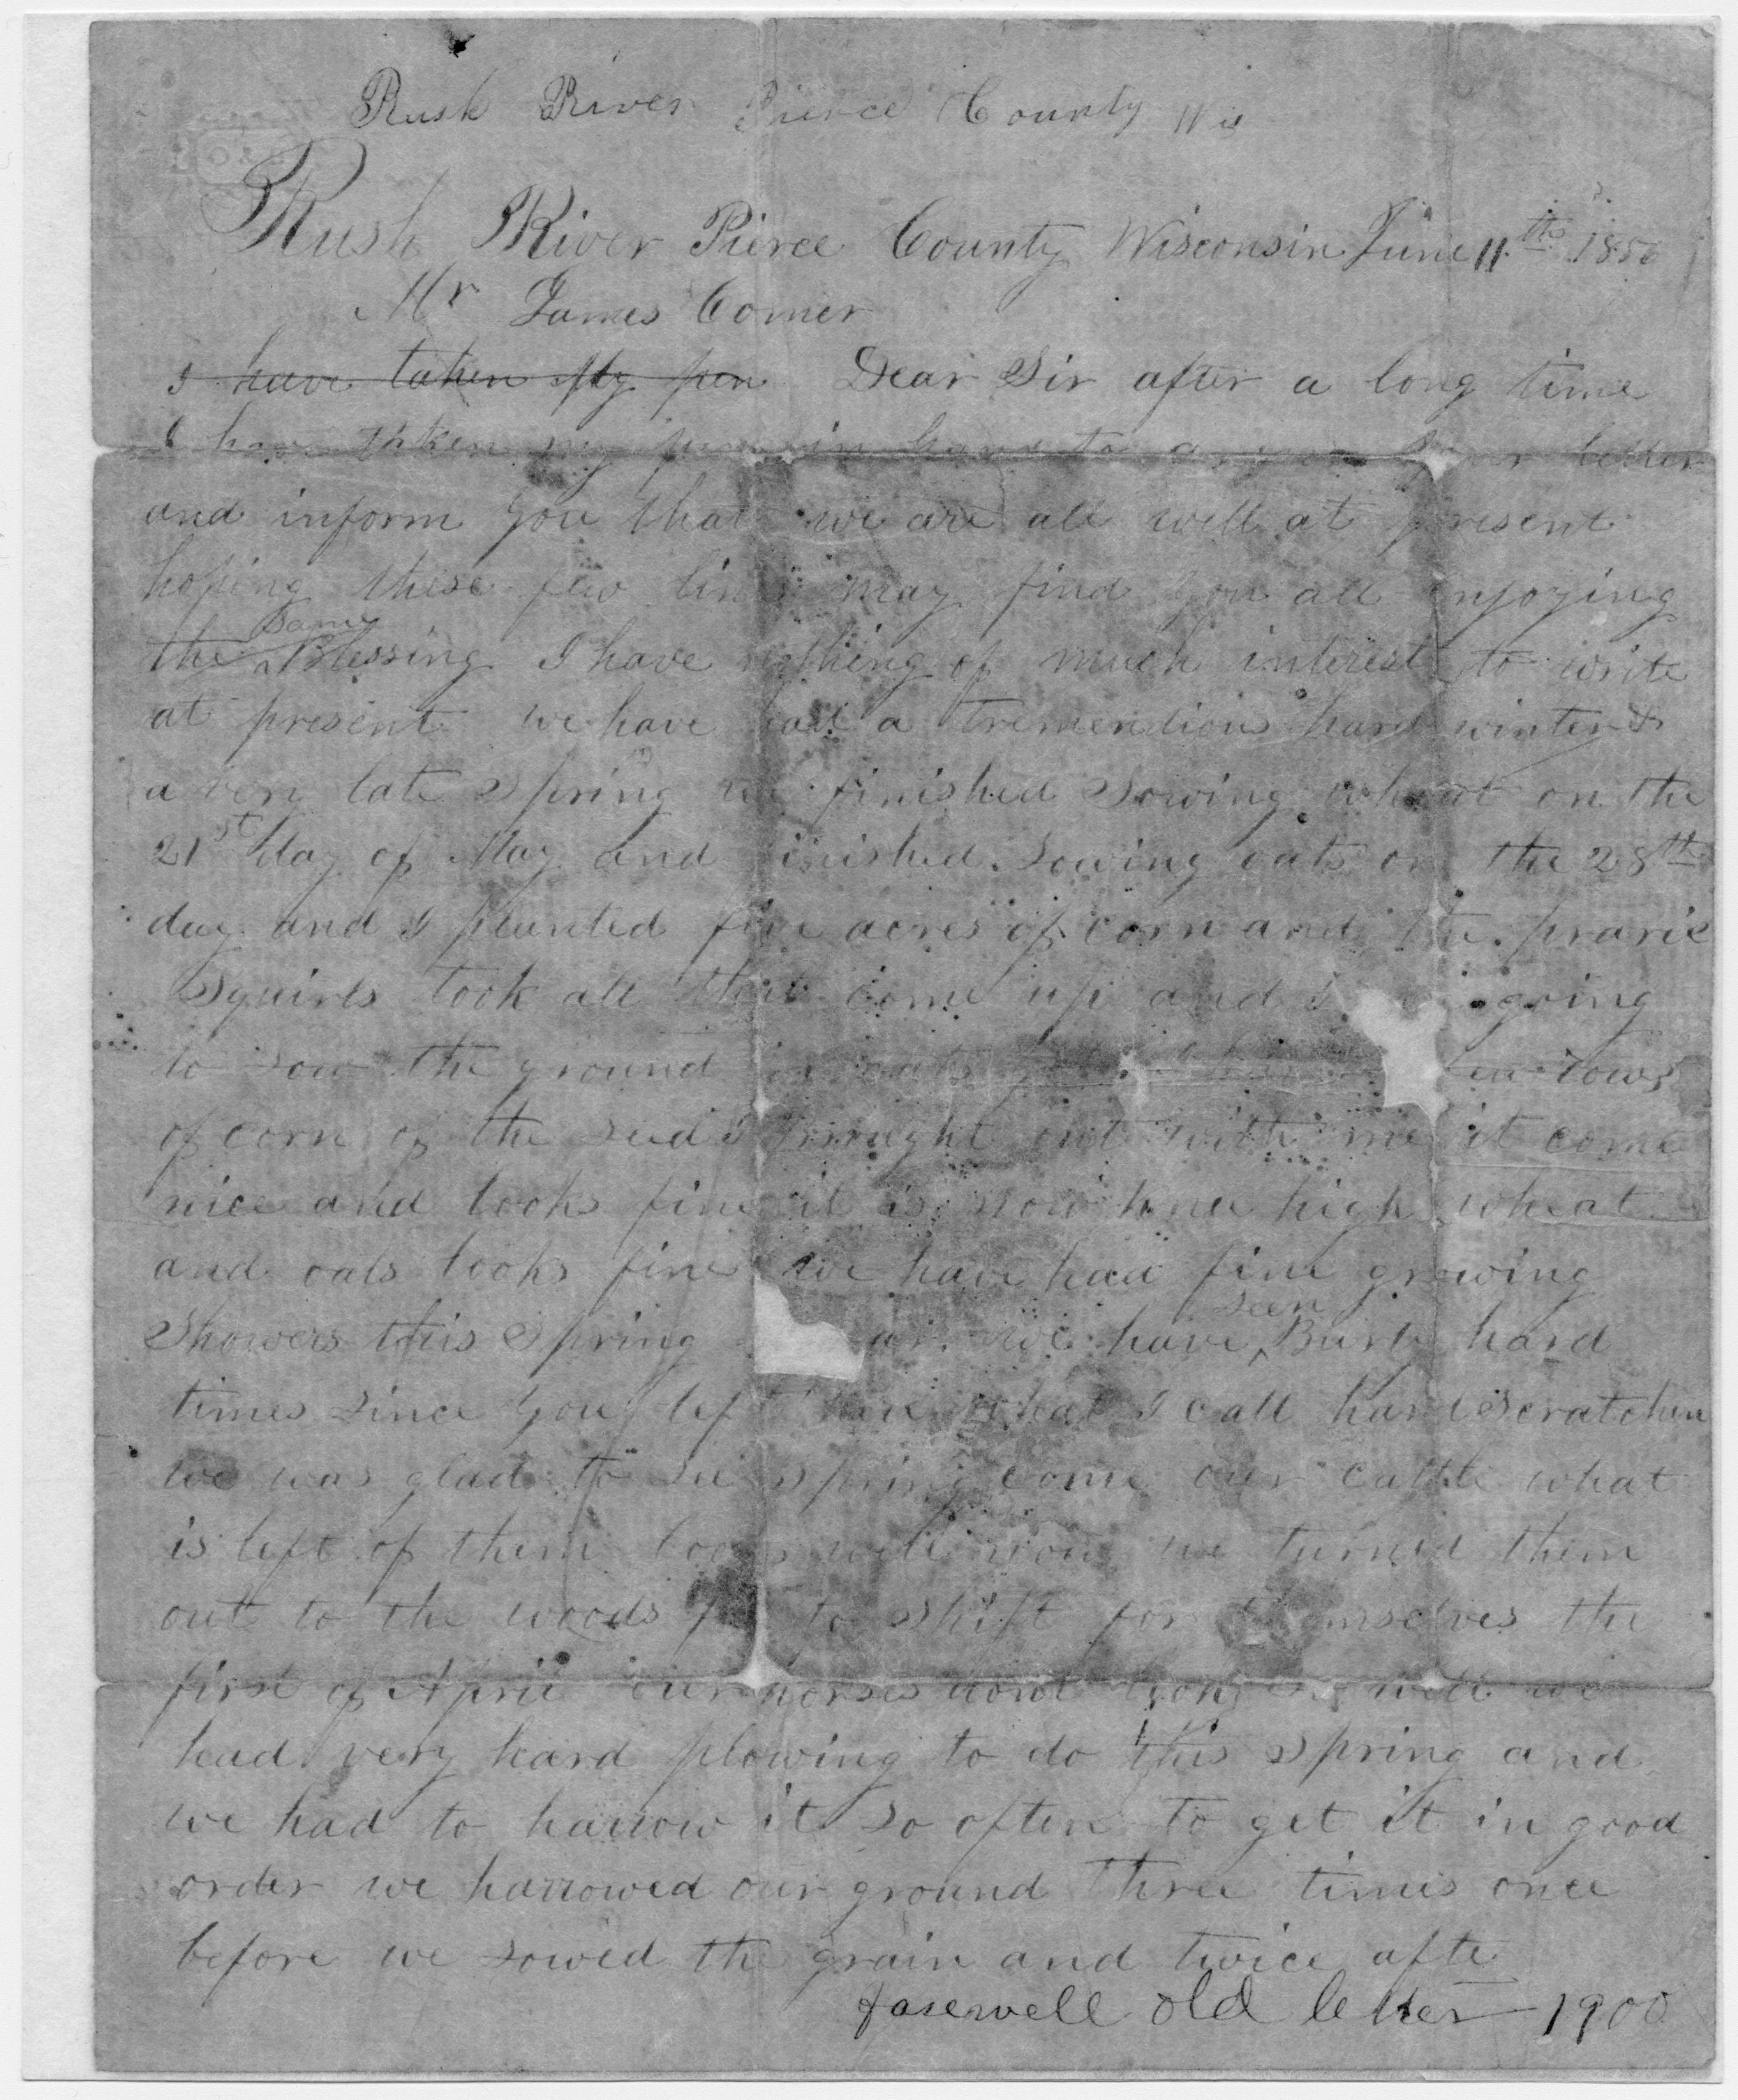 Rush River Pierce County Wis
Rush River Pierce County Wisconsin June 11th
Mr James Comer
I have taken My pen Dear Sir after a long time
I have taken my pen in to letter
and inform you that we are all well at present
hoping these few lines may find you all enjoying
same
the Blessing I have nothing of much interest to write
at present we have had a tremendious hard winter &
a very late Spring we finished Sowing wheat on the
21st day of May and finished Sowing oats on the 28th
day and I planted five acres of corn and the prarie
Squirls took all that come up and I going
to sow the ground in oats rows
of corn of the seed I brought out with me it come
nice and looks fine it is now knee high wheat
and oats looks fine we have had fine growing
seen
Showers this Spring we have hard
times since you left here what I call hard Scratchen
we was glad to see spring come our cattle what
is left of them looks well now we turned them
out to the woods to shift for themselves the
first of April our horses dont look so well we
had very hard plowing to do this spring and
we had to harrow it so often to get it in good
order we harrowed our ground three times once
before we sowed the grain and twice afte
farewell old letter 1900